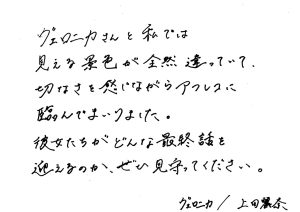 ヴェロニカさんと私では
見える景色が全然違っていて、
切なさを感じながらアフレコに
臨んでまいりました。
彼女たちがどんな最終話を
迎えるのか、ぜひ見守ってください。
ヴェロニカ / 上田麗奈